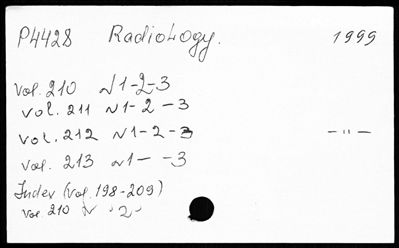 P4428 Radiology. 1999
Vol. 210 N1-2-3
vol. 211 N1-2-3
vol. 212 N1-2-3 -"-
vol. 213 N1- -3
Index (vol. 198-209)
vol. 210 N 2